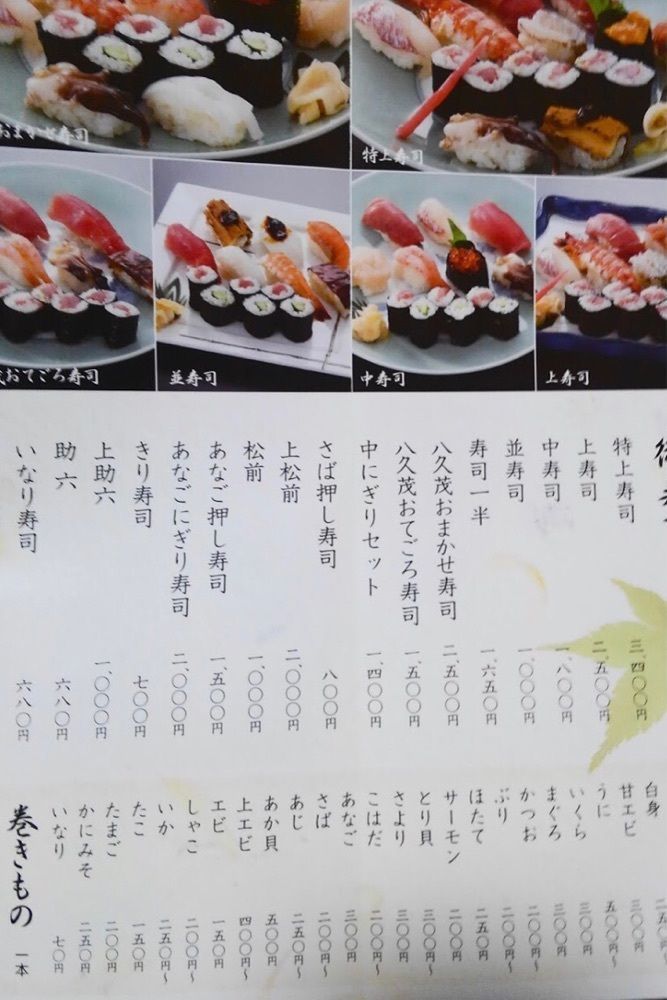 おまかせ寿司
特上寿司
おてごろ寿司
並寿司
中寿司
上寿司
特上寿司 三、四〇〇円
上寿司 二、五〇〇円
中寿司 一、八〇〇円
並寿司 一、〇〇〇円
寿司一半 一、六五〇円
八久茂おまかせ寿司 二、五〇〇円
八久茂おてごろ寿司 一、五〇〇円
中にぎりセット 一、四〇〇円
さば押し寿司 八〇〇円
上松前 二、〇〇〇円
松前 一、〇〇〇円
あなご押し寿司 一、五〇〇円
あなごにぎり寿司 二、〇〇〇円
きり寿司 七〇〇円
上助六 一、〇〇〇円
助六 六八〇円
いなり寿司 六八〇円
白身
甘エビ 三〇〇円
うに 五〇〇円〜
いくら 三〇〇円
まぐろ 三〇〇円〜
かつお 二〇〇円〜
ぶり 二〇〇円〜
ほたて 二五〇円
サーモン 二〇〇円
とり貝 三〇〇円〜
さより 三〇〇円
こはだ 二〇〇円〜
あなご 三〇〇円
さば 二〇〇円〜
あじ 二五〇円〜
あか貝 五〇〇円
上エビ 四〇〇円〜
エビ 一五〇円
しゃこ 二〇〇円〜
いか 二五〇円〜
たこ 一五〇円
たまご 二〇〇円
かにみそ 二五〇円
いなり 七〇円
巻きもの 一本